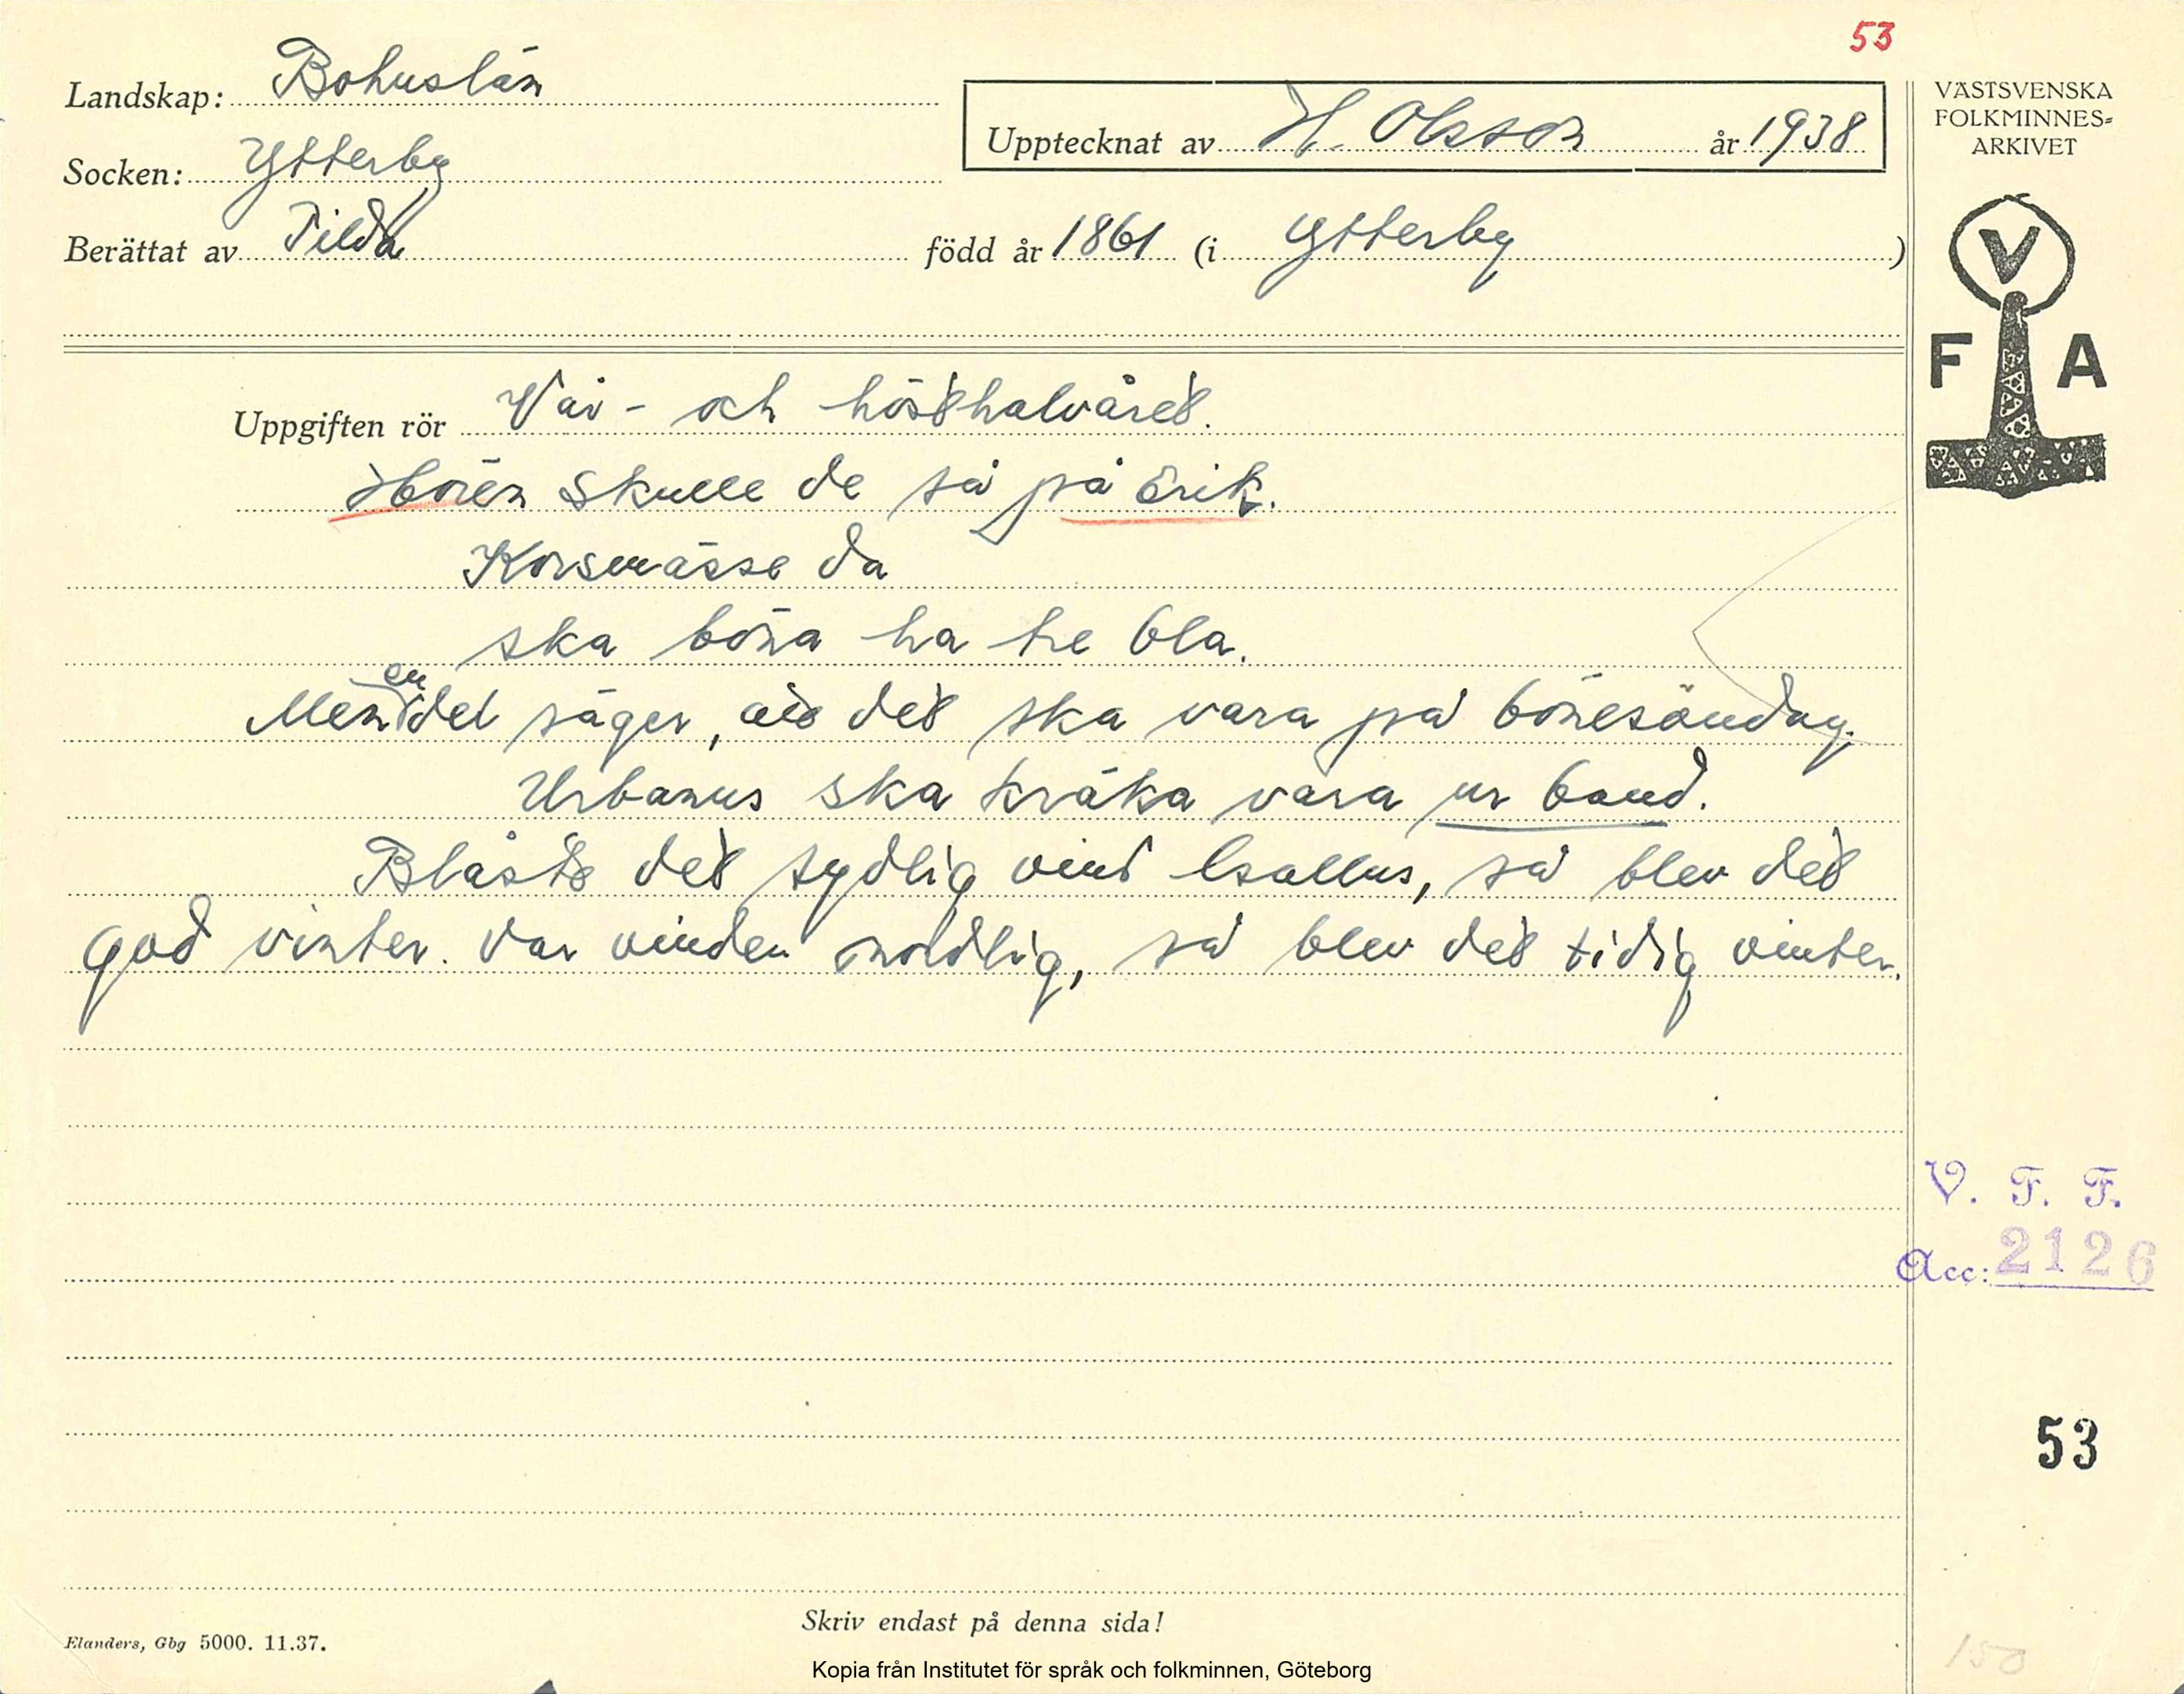 53
Landskap: Bohuslän
VÄSTSVENSKA
FOLKMINNES-
ARKIVET
Upptecknat av H. Olsson år 1938
Socken: Ytterby
Berättat av Tilda född år 1861 (i Ytterby)
V
F A
Uppgiften rör Vår- och hösthalvåret.
Hören skulle de så på Erik.
Korsmässe da
ska böna ha tre bla.
Men en del säger, att det ska vara på bönesöndag.
Urbanus ska kråka vara ur band.
Blåste det sydlig vind Calixtus, så blev det
god vinter. Var vinden nordlig, så blev det tidig vinter.
V. F. F.
Acc: 2126
53
Skriv endast på denna sida!
Elanders, Gbg 5000. 11.37.
150
Kopia från Institutet för språk och folkminnen, Göteborg